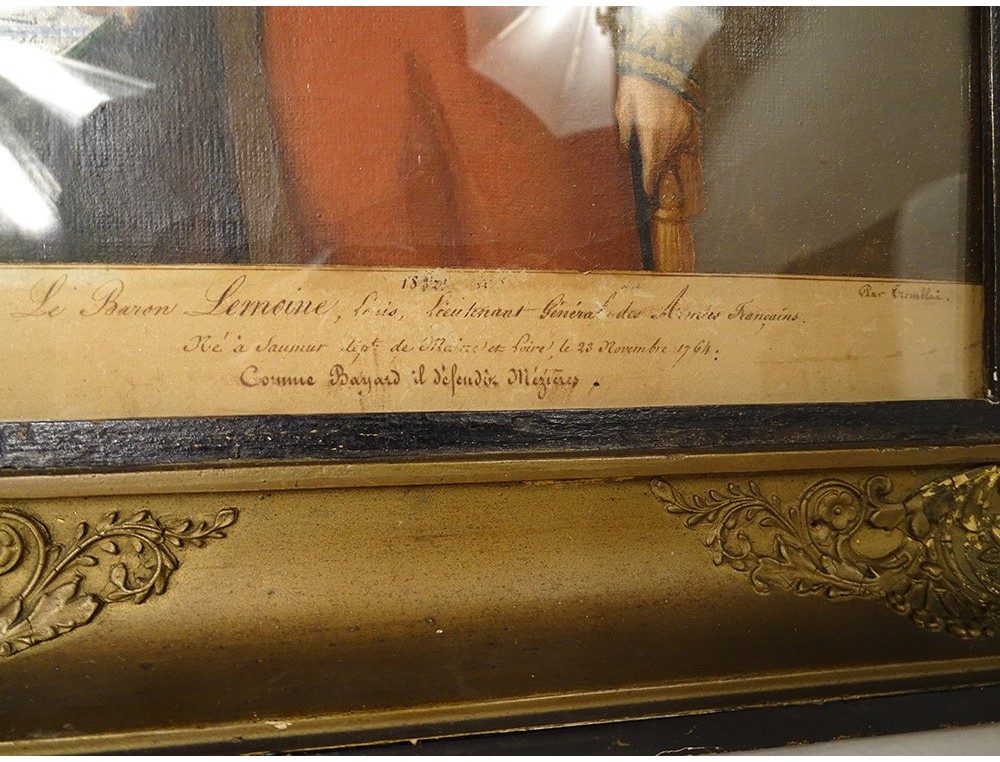 18
Par Tremblai.
Le Baron Lemoine, Louis, Lieutenant Général des Armées Françaises.
Né à Saumur dépt. de Maine et Loire, le 23 Novembre 1764.
Comme Bayard il défendit Mézières.